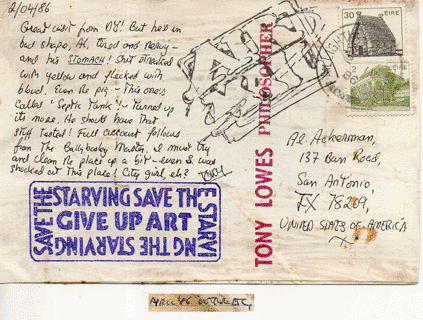 2/04/86
Great visit from D8! But he's in
bad shape, Al, tired and nervy -
and his STOMACH! Shit streaked
with yellow and flecked with
blood. Even the pig - This one's
called 'Septic Tank'! - turned up
its nose. He should have that
stuff tested! Full account follows
from the Ballybaloy I must try
and clean the place up a bit - even I was
shocked at This place! City girl, eh?
Tony
SAVE THE STARVING SAVE THE STARVING
GIVE UP ART
SAVE THE STARVING
TONY LOWES PHILOSOPHER
30 EIRE
EIRE
Al. Ackerman,
137 Road,
San Antonio,
TX 78209,
UNITED STATES OF AMERICA
APRIL '86